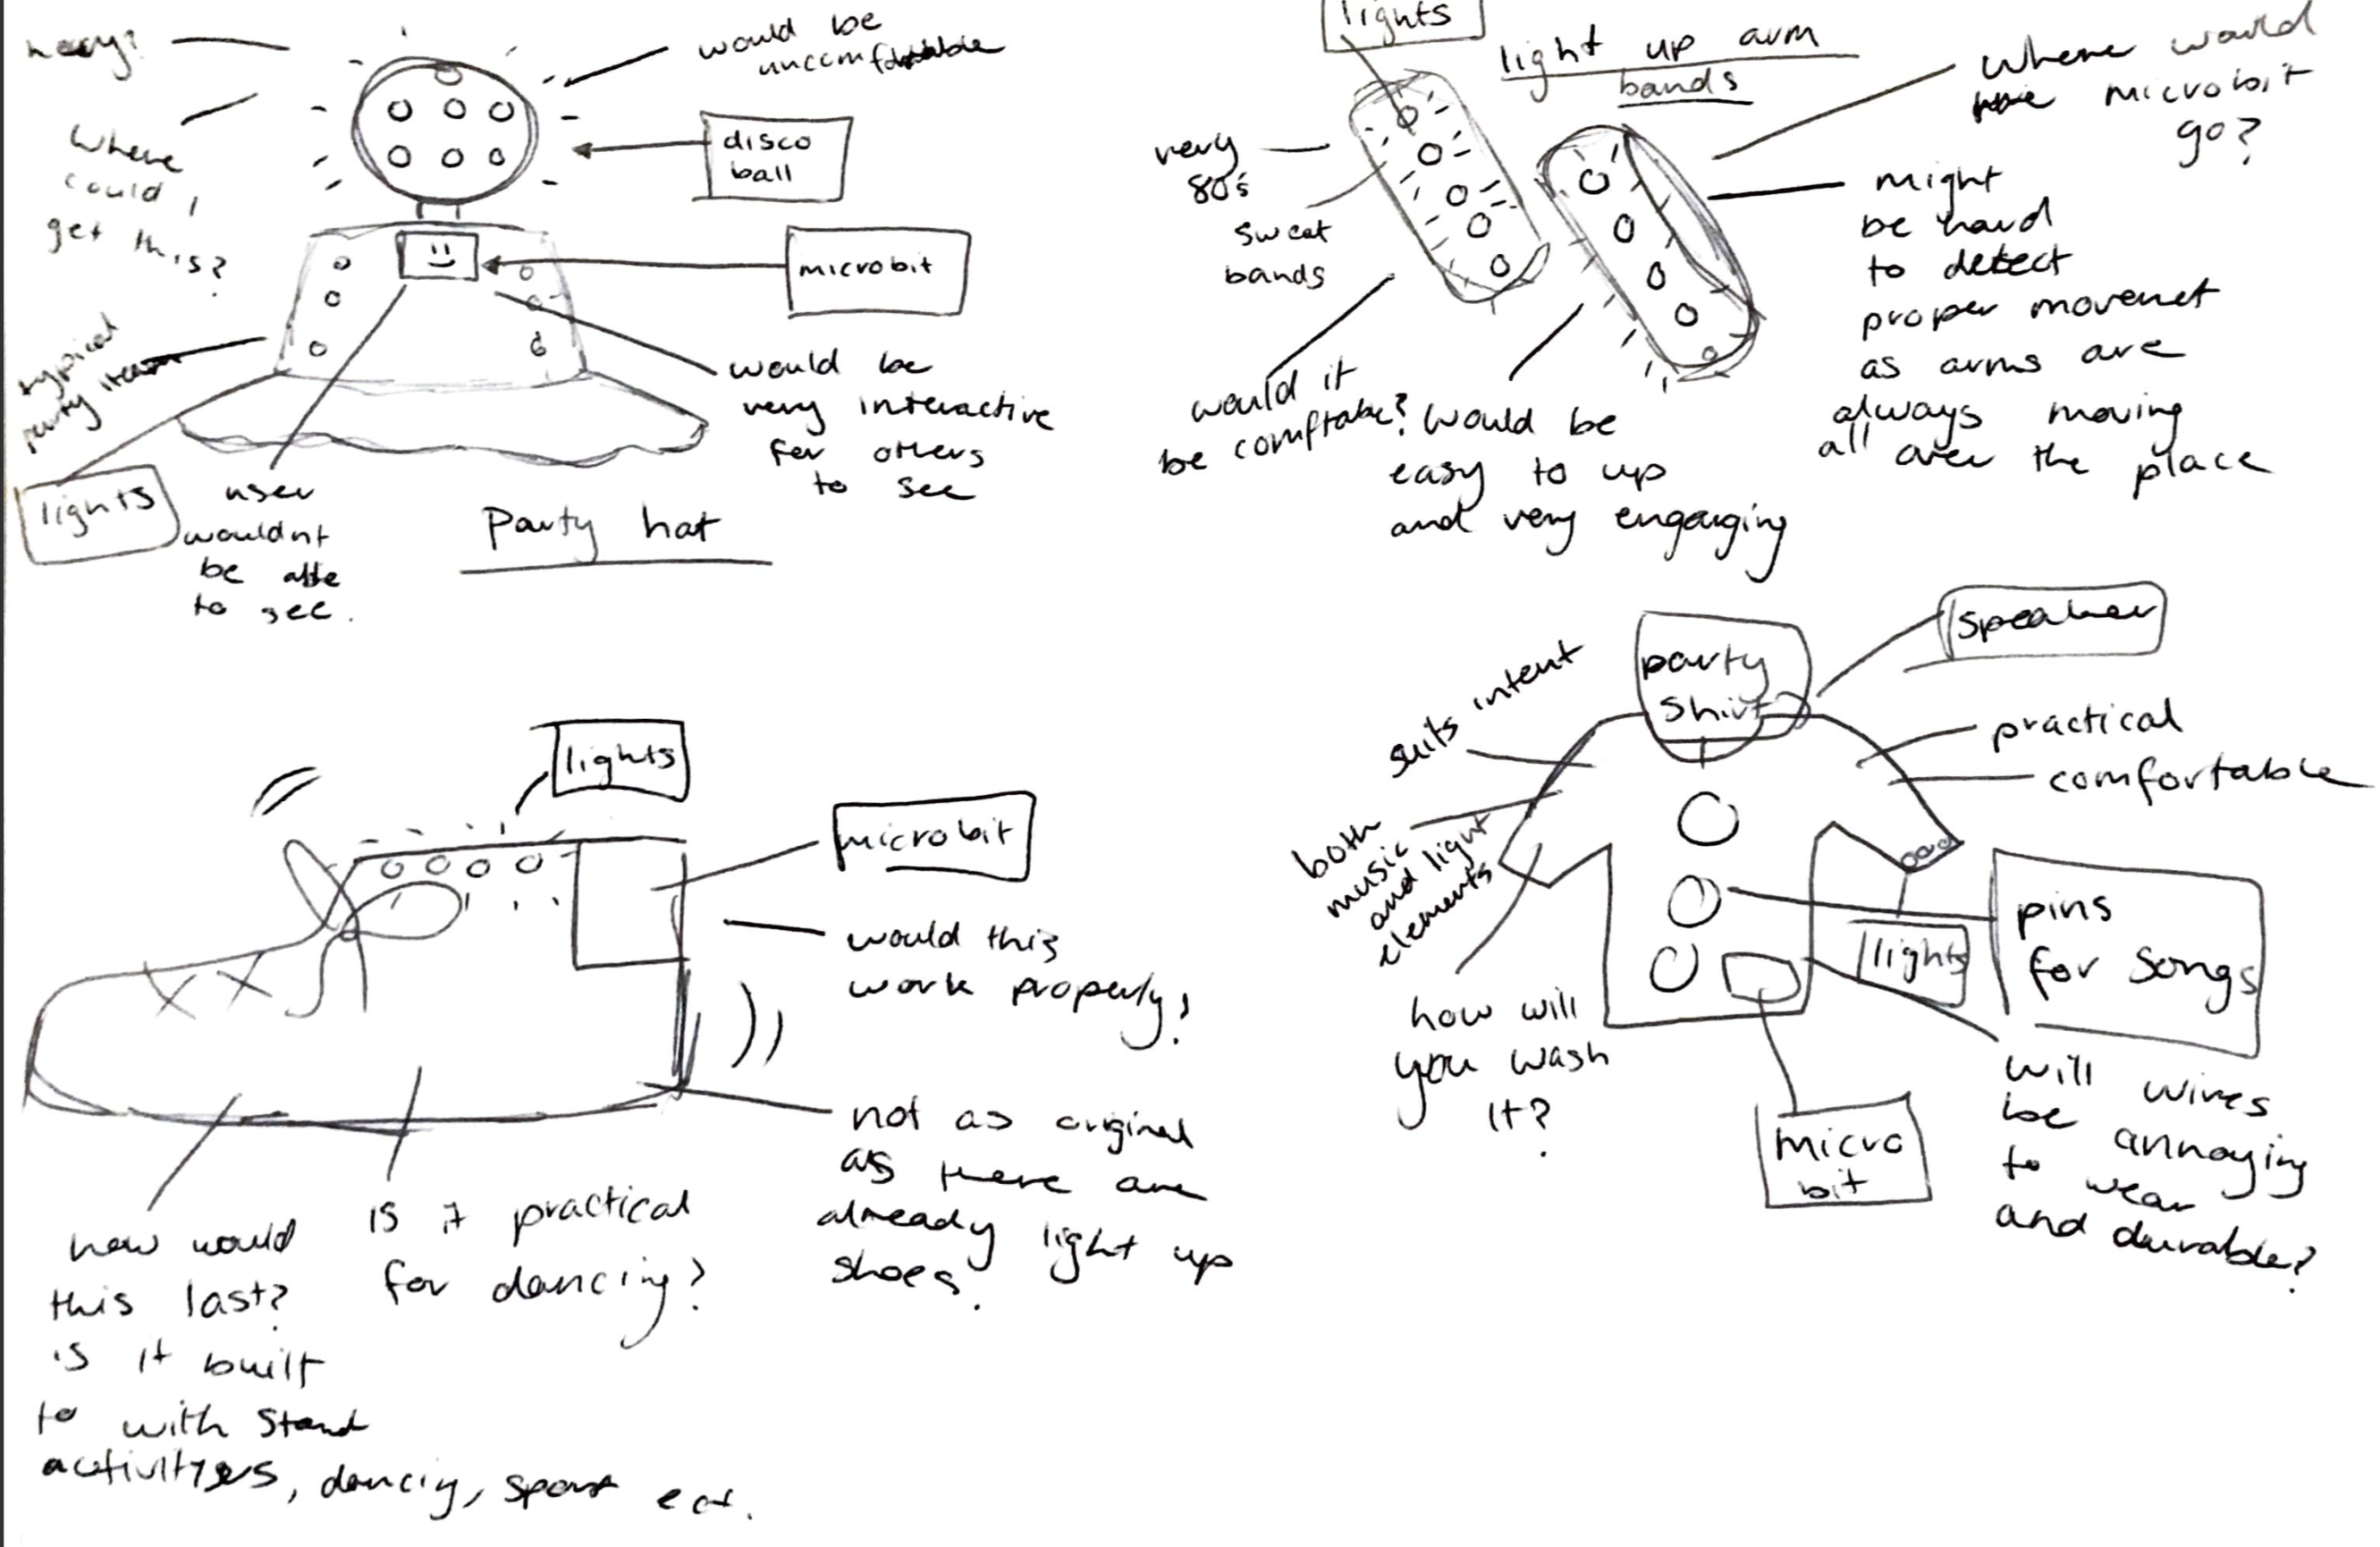 heavy?
would be
uncomfortable
where
could I
get this?
disco
ball
microbit
typical
party item
lights
user
wouldnt
be able
to see.
would be
very interactive
for others
to see
Party hat
lights
light up arm
bands
very
80's
sweat
bands
where would
microbit
go?
might
be hard
to detect
proper movenet
as arms are
always moving
all over the place
would it
be comftable?
would be
easy to up
and very engaging
lights
microbit
would this
work properly?
not as original
as there are
already light up
shoes.
how would
this last?
is it built
to with stand
activitys, dancig, sport ect.
is it practical
for dancing?
party
shirt
speaker
suits intent
practical
comfortable
both
music
and light
elements
pins
for songs
lights
how will
you wash
it?
micro
bit
will wires
be annoying
to wear
and durable?